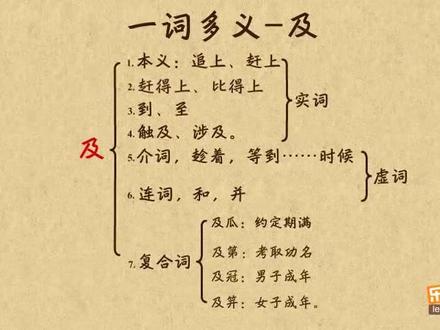 一词多义-及
1. 本义：追上、赶上
2. 赶得上、比得上
3. 到、至
4. 触及、涉及。
实词
及
5. 介词，趁着，等到……时候
6. 连词，和，并
虚词
7. 复合词
及瓜：约定期满
及第：考取功名
及冠：男子成年
及笄：女子成年。